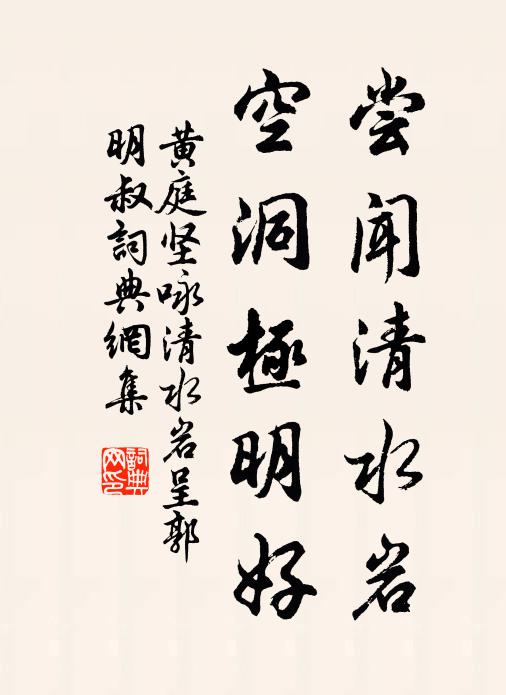 尝闻清水岩
空洞極明好
黄庭坚咏清水岩呈郭
明叔詞典網集
詞典网印